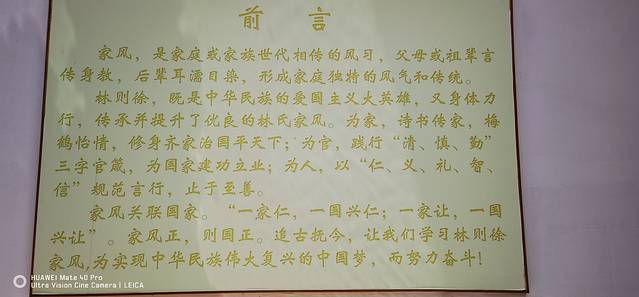 前 言
家风，是家庭或家族世代相传的风习，父母或祖辈言
传身教，后辈耳濡目染，形成家庭独特的风气和传统。
林则徐，既是中华民族的爱国主义大英雄，又身体力
行，传承并提升了优良的林氏家风。为家，诗书传家，梅
鹤怡情，修身齐家治国平天下；为官，践行“清、慎、勤”
三字官箴，为国家建功立业；为人，以“仁、义、礼、智、
信”规范言行，止于至善。
家风关联国家。“一家仁，一国兴仁；一家让，一国
兴让”。家风正，则国正。追古抚今，让我们学习林则徐
家风,为实现中华民族伟大复兴的中国梦，而努力奋斗！
HUAWEI Mate 40 Pro
Ultra Vision Cine Camera | LEICA